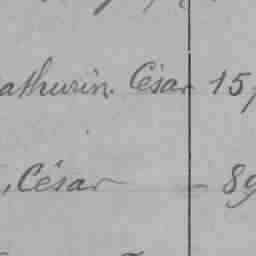 athurin César 157
, César — 89